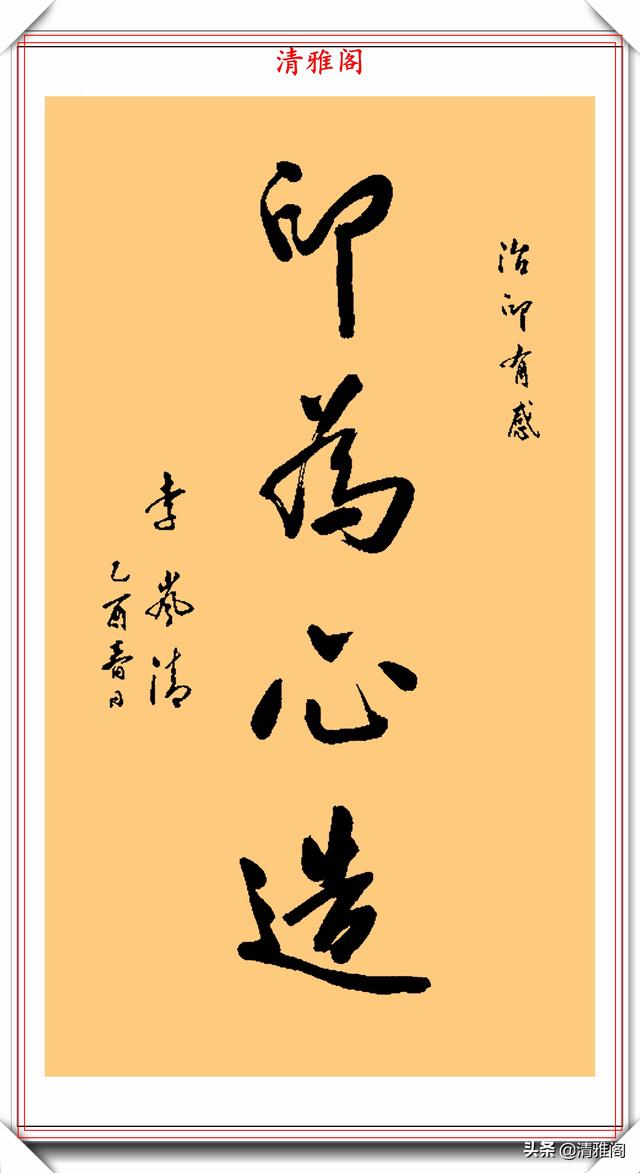 清雅阁
治印有感
印為心造
李嵐清
乙酉春日
头条 @清雅阁